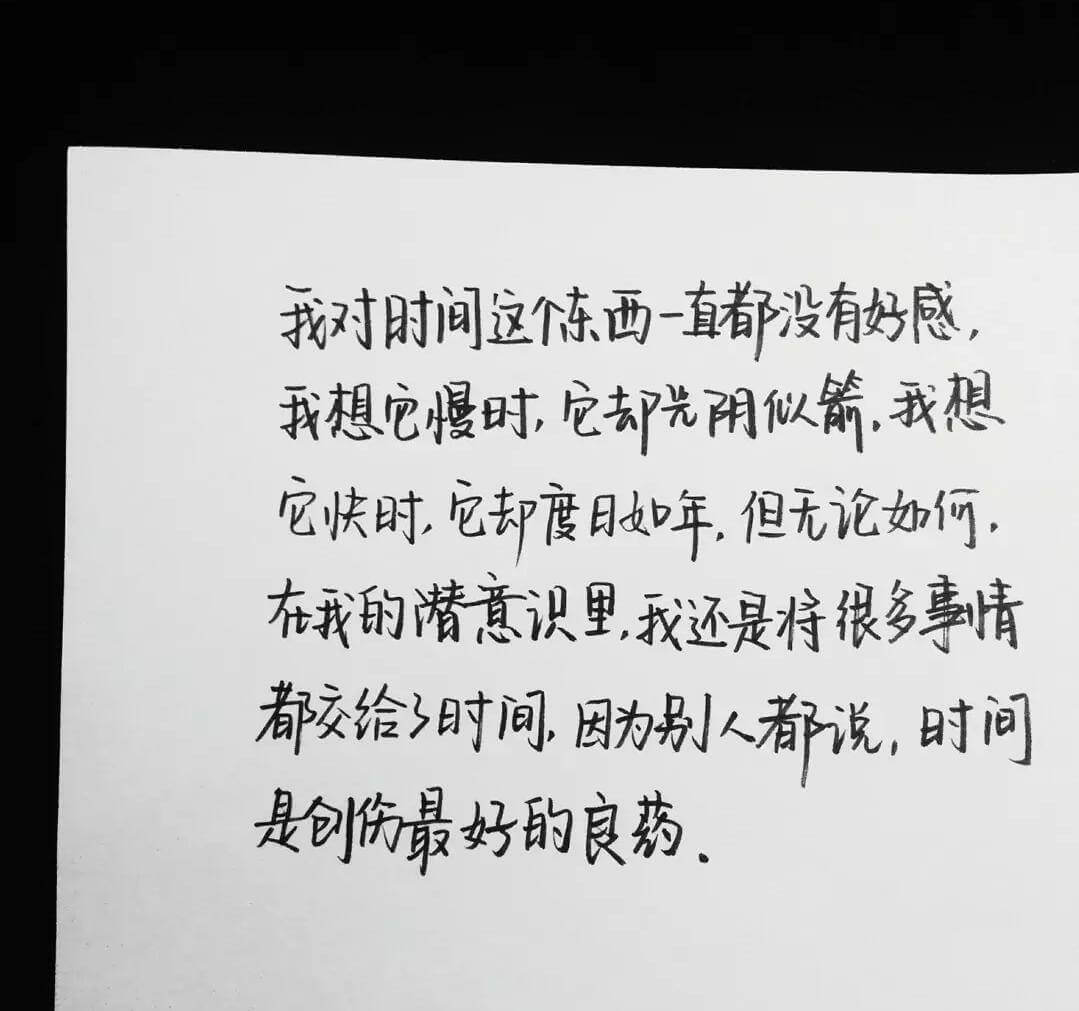 我对时间这个东西一直都没有好感,
我想它慢时,它却光阴似箭.我想
它快时,它却度日如年.但无论如何.
在我的潜意识里,我还是将很多事情
都交给了时间,因为别人都说,时间
是创伤最好的良药.